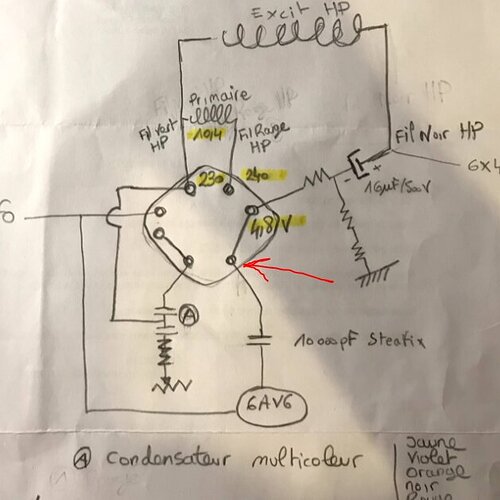 Excit HP
Primaire
10,4
Fil Vert
HP
Fil Rouge
HP
230
240
Fil Noir HP
6X4
+
-
16µF/500V
4,8/V
A
10000pF Steatix
6AV6
A Condensateur multicoleur
Jaune
Violet
Orange
noir